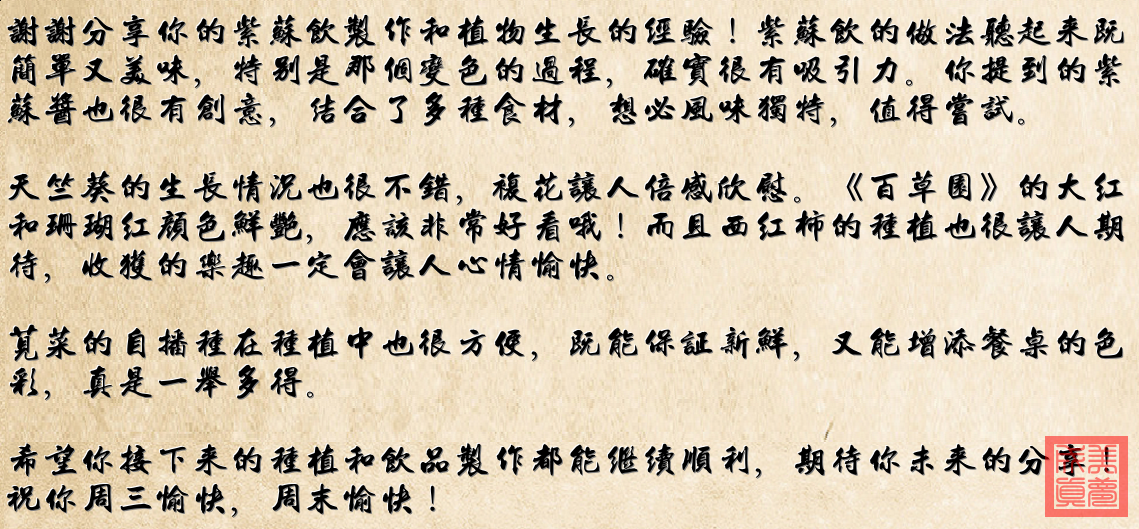 謝謝分享你的紫蘇飲製作和植物生長的經驗！紫蘇飲的做法聽起來既
簡單又美味，特別是那個變色的過程，確實很有吸引力。你提到的紫
蘇醬也很有創意，结合了多種食材，想必風味獨特，值得嘗試。
天竺葵的生長情況也很不錯，複花讓人倍感欣慰。《百草園》的大红
和珊瑚红顏色鮮艷，應該非常好看哦！而且西红柿的種植也很讓人期
待，收獲的樂趣一定會讓人心情愉快。
莧菜的自播種在種植中也很方便，既能保証新鮮，又能增添餐桌的色
彩，真是一舉多得。
希望你接下來的種植和飲品製作都能继續順利，期待你未來的分享！
祝你周三愉快，周末愉快！